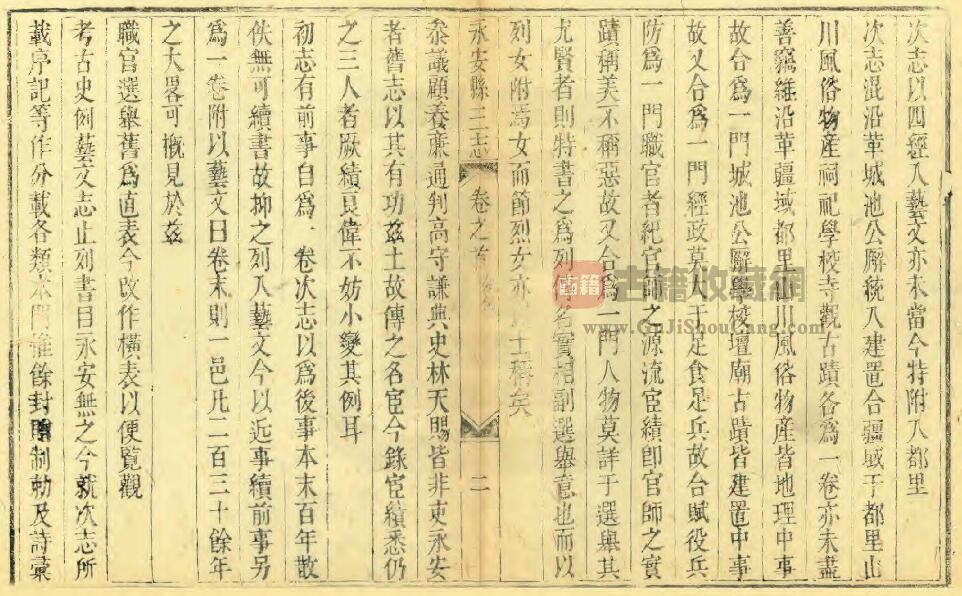 次志以四經入藝文亦未當今特附入都里
次志混沿革城池公廨稅入建置合疆域于都里山
川風俗物產祠祀學校寺觀古蹟各為一卷亦未盡
善竊維沿革疆域都里山川風俗物產皆地理中事
故合為一門城池公廨學校壇廟古蹟皆建置中事
故又合為一門經政莫大于足食足兵故合賦役兵
防為一門職官者紀官師之源流宦績即官師之實
蹟稱美不稱惡故又合為一門人物莫詳于選舉其
尤賢者則特書之為列傳名實相副選舉意也而以
列女附焉女而節烈女亦士稱矣
永安縣三志 卷之首 二
叅議顧養謙通判高守謙典史林天賜皆非吏永安
者舊志以其有功茲土故傳之名宦今錄宦績悉仍
之三人者厥績良偉不妨小變其例耳
初志有前事自為一卷次志以為後事本末百年散
佚無可續書故抑之列入藝文今以近事續前事另
為一卷附以藝文曰卷末則一邑凡二百三十餘年
之大畧可概見於茲
職官選舉舊為直表今改作橫表以便覽觀
考古史例藝文志止列書目永安無之今就次志所
載序記等作分載各類本門惟餘封贈制勅及詩彙
古籍
古籍收藏網
www.GuJiShouCang.com